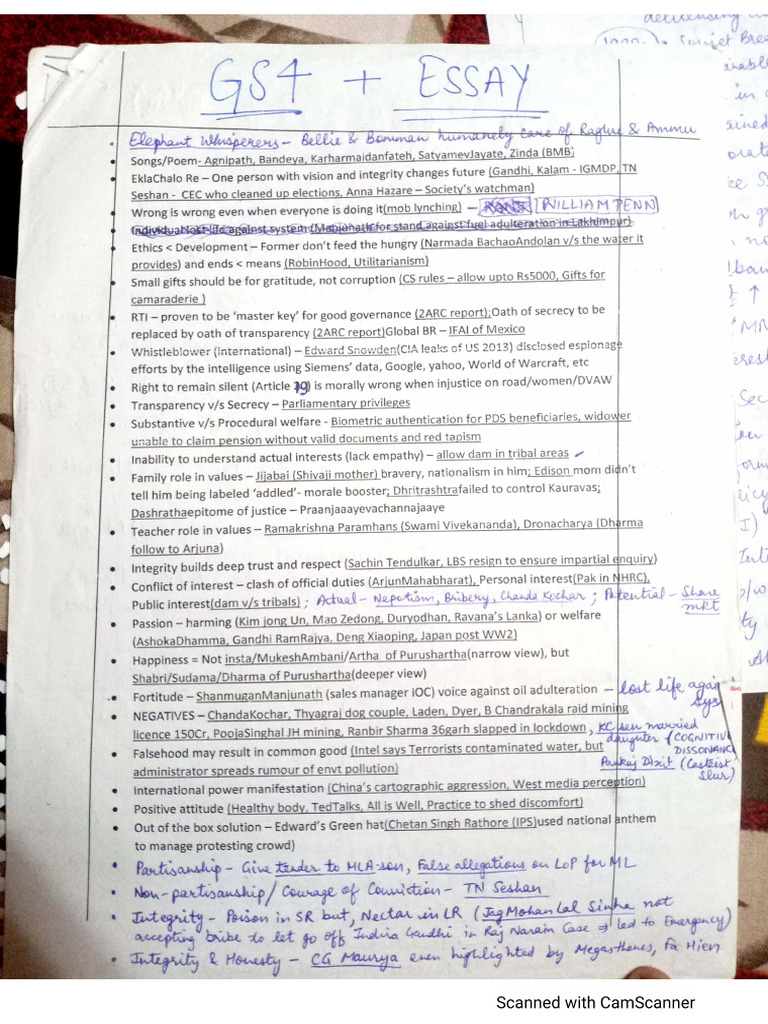 GS4 + ESSAY
• Elephant Whisperers – Bellie & Bomman humanely care of Raghu & Ammu
• Songs/Poem- Agnipath, Bandeya, Karharmaidanfateh, SatyamevJayate, Zinda (BMB)
• EklaChalo Re – One person with vision and integrity changes future (Gandhi, Kalam - IGMDP, TN
Seshan - CEC who cleaned up elections, Anna Hazare – Society's watchman)
• Wrong is wrong even when everyone is doing it(mob lynching) – WILLIAM PENN
• Individual lost life against system (Manjunath for stand against fuel adulteration in Lakhimpur)
• Ethics < Development – Former don't feed the hungry (Narmada BachaoAndolan v/s the water it
provides) and ends < means (RobinHood, Utilitarianism)
• Small gifts should be for gratitude, not corruption (CS rules – allow upto Rs5000, Gifts for
camaraderie )
• RTI – proven to be 'master key' for good governance (2ARC report);Oath of secrecy to be
replaced by oath of transparency (2ARC report)Global BR – IFAI of Mexico
• Whistleblower (international) – Edward Snowden(CIA leaks of US 2013) disclosed espionage
efforts by the intelligence using Siemens' data, Google, yahoo, World of Warcraft, etc
• Right to remain silent (Article 19) is morally wrong when injustice on road/women/DVAW
• Transparency v/s Secrecy – Parliamentary privileges
• Substantive v/s Procedural welfare - Biometric authentication for PDS beneficiaries, widower
unable to claim pension without valid documents and red tapism
• Inability to understand actual interests (lack empathy) – allow dam in tribal areas
• Family role in values – Jijabai (Shivaji mother) bravery, nationalism in him; Edison mom didn't
tell him being labeled 'addled'- morale booster; Dhritrashtrafailed to control Kauravas;
Dashrathaepitome of justice – Praanjaaayevachannajaaye
• Teacher role in values – Ramakrishna Paramhans (Swami Vivekananda), Dronacharya (Dharma
follow to Arjuna)
• Integrity builds deep trust and respect (Sachin Tendulkar, LBS resign to ensure impartial enquiry)
• Conflict of interest – clash of official duties (ArjunMahabharat), Personal interest(Pak in NHRC),
Public interest(dam v/s tribals) ; Actual – Nepotism, Bribery, Chanda Kochar ; Potential – Share
mkt
• Passion – harming (Kim jong Un, Mao Zedong, Duryodhan, Ravana's Lanka) or welfare
(AshokaDhamma, Gandhi RamRajya, Deng Xiaoping, Japan post WW2)
• Happiness = Not insta/MukeshAmbani/Artha of Purushartha(narrow view), but
Shabri/Sudama/Dharma of Purushartha(deeper view)
• Fortitude – ShanmuganManjunath (sales manager IOC) voice against oil adulteration – lost life again
sys
• NEGATIVES – ChandaKochar, Thyagraj dog couple, Laden, Dyer, B Chandrakala raid mining
licence 150Cr, PoojaSinghal JH mining, Ranbir Sharma 36garh slapped in lockdown , KC sen married
daughter (COGNITIVE
DISSONANC
• Falsehood may result in common good (Intel says Terrorists contaminated water, but
Pankaj Dixit (Casteist
administrator spreads rumour of envt pollution)
Slur)
• International power manifestation (China's cartographic aggression, West media perception)
• Positive attitude (Healthy body, TedTalks, All is Well, Practice to shed discomfort)
• Out of the box solution – Edward's Green hat(Chetan Singh Rathore (IPS)used national anthem
to manage protesting crowd)
• Partisanship – Give tender to MLA-son, False allegations on LoP for ML
• Non-partisanship/ Courage of Conviction – TN Seshan
• Integrity – Poison in SR but, Nectar in LR (JagMohanLal Sinha not
accepting bribe to let go off Indira Gandhi in Raj Narain Case ⇒ led to Emergency)
• Integrity & Honesty – CG Maurya even highlighted by Megasthenes, Fa Hien
Scanned with CamScanner